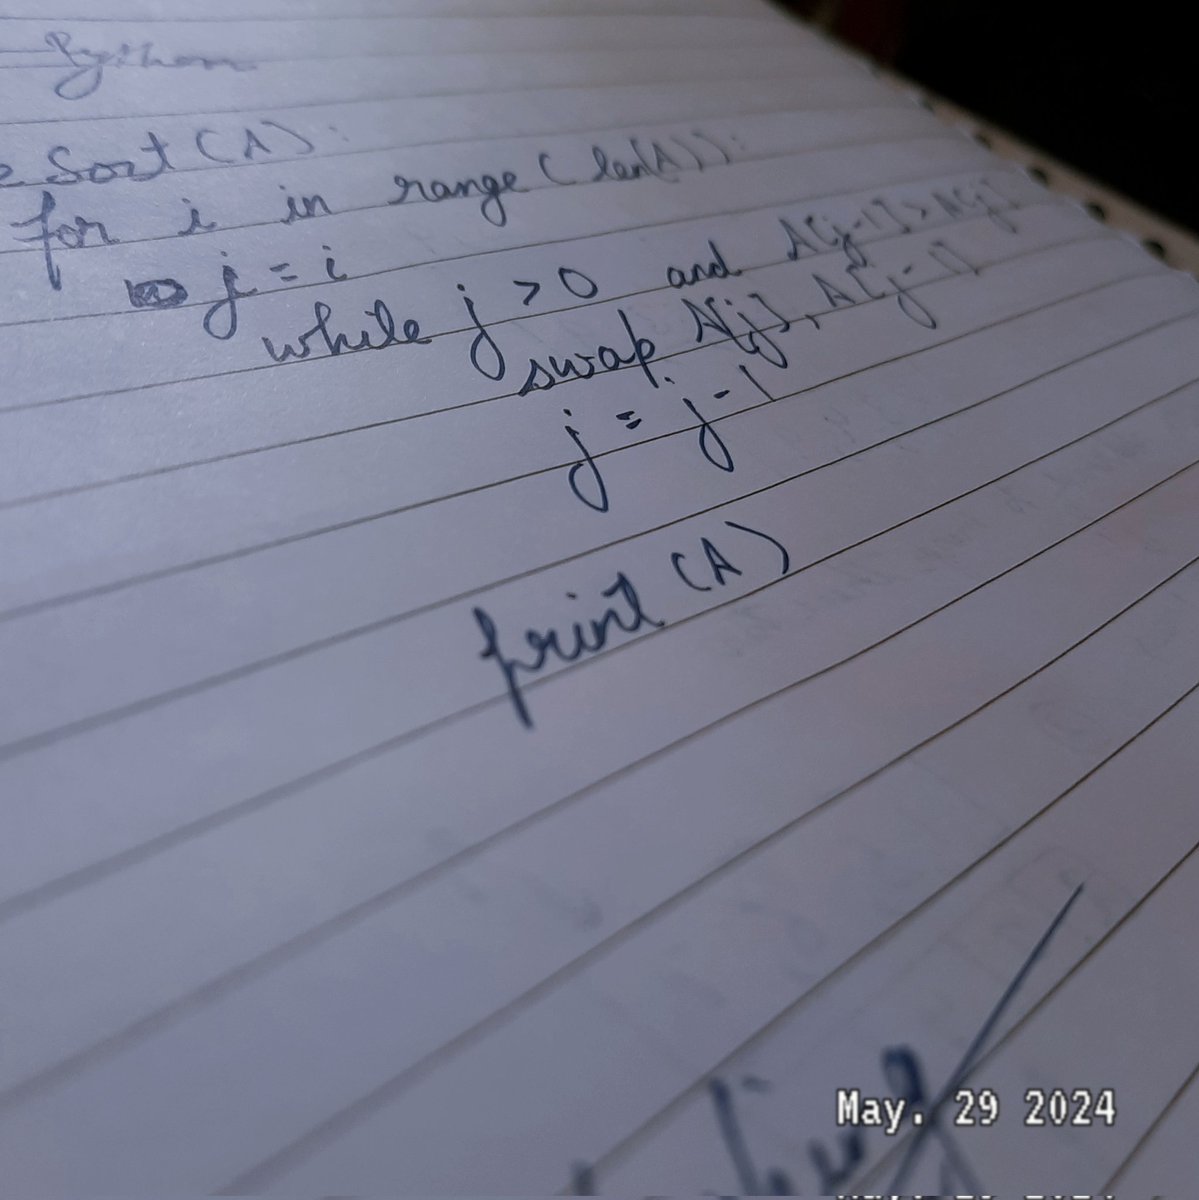 Python
e Sort(A):
for i in range(len(A)):
j = i
while j > 0 and A[j-1] > A[j]
swap A[j], A[j-1]
j = j-1
print(A)
May. 29 2024